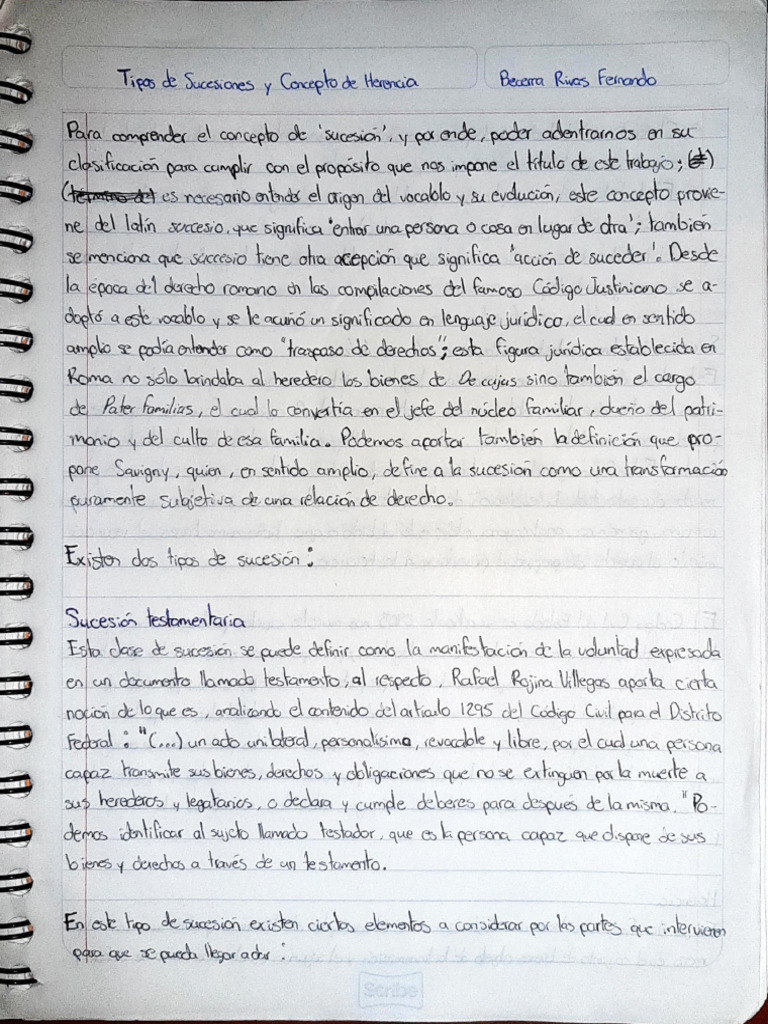 Tipos de Sucesiones y Concepto de Herencia
Becerra Rivas Fernando
Para comprender el concepto de 'sucesión', y por ende, poder adentrarnos en su
clasificación para cumplir con el propósito que nos impone el título de este trabajo;
es necesario entender el origen del vocablo y su evolución, este concepto provie-
ne del latín succesio, que significa 'entrar una persona o cosa en lugar de otra'; también
se menciona que succesio tiene otra acepción que significa 'acción de suceder'. Desde
la época del derecho romano en las compilaciones del famoso Código Justiniano se a-
doptó a este vocablo y se le acuñó un significado en lenguaje jurídico, el cual en sentido
amplio se podía entender como "traspaso de derechos"; esta figura jurídica establecida en
Roma no sólo brindaba al heredero los bienes de De cujus sino también el cargo
de Pater familias, el cual lo convertía en el jefe del núcleo familiar, dueño del patri-
monio y del culto de esa familia. Podemos aportar también la definición que pro-
pone Savigny, quien, en sentido amplio, define a la sucesión como una transformación
puramente subjetiva de una relación de derecho.
Existen dos tipos de sucesión:
Sucesión testamentaria
Esta clase de sucesión se puede definir como la manifestación de la voluntad expresada
en un documento llamado testamento, al respecto, Rafael Rojina Villegas aporta cierta
noción de lo que es, analizando el contenido del artículo 1295 del Código Civil para el Distrito
Federal: "(...) un acto unilateral, personalísimo, revocable y libre, por el cual una persona
capaz transmite sus bienes, derechos y obligaciones que no se extinguen por la muerte a
sus herederos y legatarios, o declara y cumple deberes para después de la misma." Po-
demos identificar al sujeto llamado testador, que es la persona capaz que dispone de sus
bienes y derechos a través de un testamento.
En este tipo de sucesión existen ciertos elementos a considerar por las partes que intervienen
para que se pueda llegar a dar:
Scribe